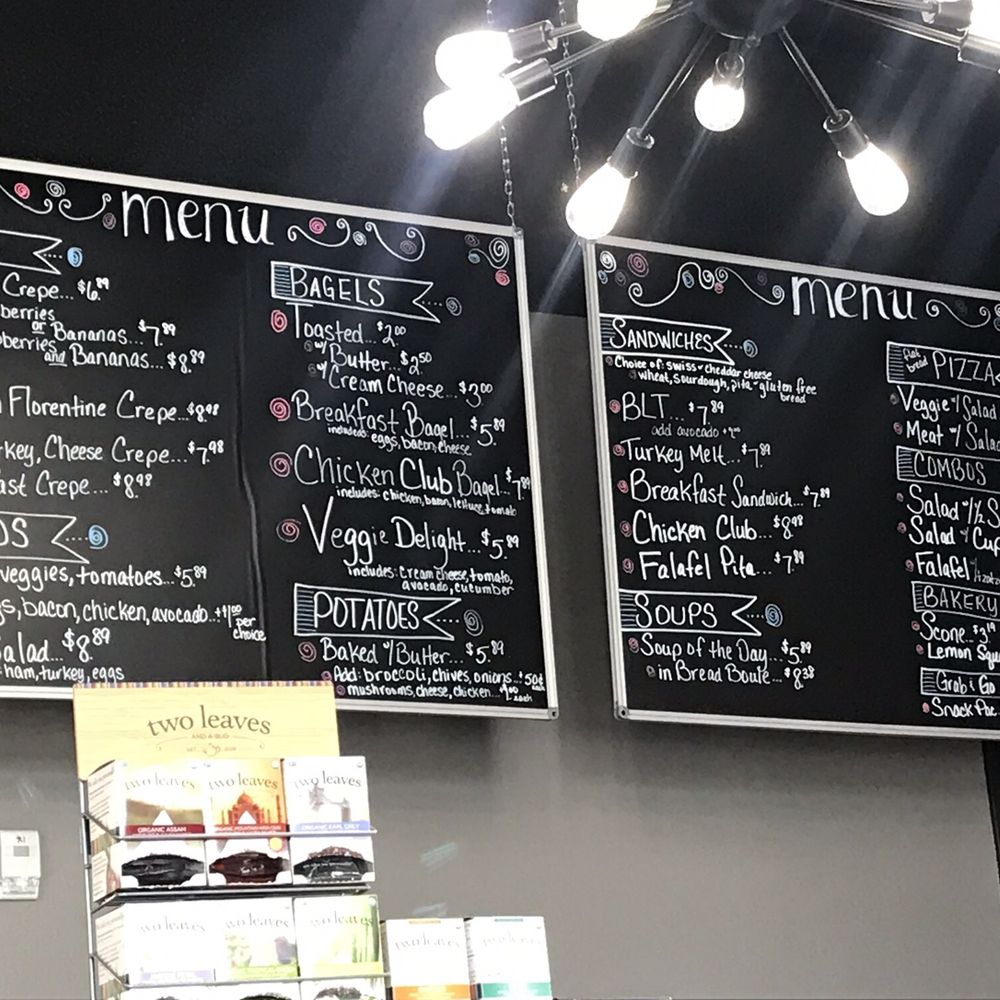 menu
Crepe... $6.89
berries
or Bananas... $7.89
berries
and Bananas... $8.89
Florentine Crepe... $8.98
key, Cheese Crepe... $7.98
ast Crepe... $8.98
DS
veggies, tomatoes... $5.89
s, bacon, chicken, avocado...+$1.00 per choice
alad... $8.89
ham, turkey, eggs
BAGELS
Toasted... $2.00
w/ Butter... $2.50
w/ Cream Cheese... $3.00
Breakfast Bagel... $5.89
includes: eggs, bacon, cheese
Chicken Club Bagel... $7.89
includes: chicken, bacon, lettuce, tomato
Veggie Delight... $5.89
includes: cream cheese, tomato,
avocado, cucumber
POTATOES
Baked w/ Butter... $5.89
Add: broccoli, chives, onions... 50¢ each
mushrooms, cheese, chicken... $1.00 each
menu
SANDWICHES
Choice of: swiss or cheddar cheese
wheat, sourdough, pita or gluten free
bread
BLT... $7.89
add avocado
Turkey Melt... $7.89
Breakfast Sandwich... $7.89
Chicken Club... $8.98
Falafel Pita... $7.89
SOUPS
Soup of the Day... $5.89
in Bread Boule... $8.38
flat bread PIZZA
Veggie w/ Salad
Meat w/ Salad
COMBOS
Salad w/ ½ S
Salad w/ Cup
Falafel
BAKERY
Scone... $3.19
Lemon Squ
Grab & Go
Snack Pac
two leaves
AND A BUD
two leaves
ORGANIC ASSAM
two leaves
two leaves
ORGANIC EARL GREY
two leaves
two leaves
two leaves
two leaves
two leaves